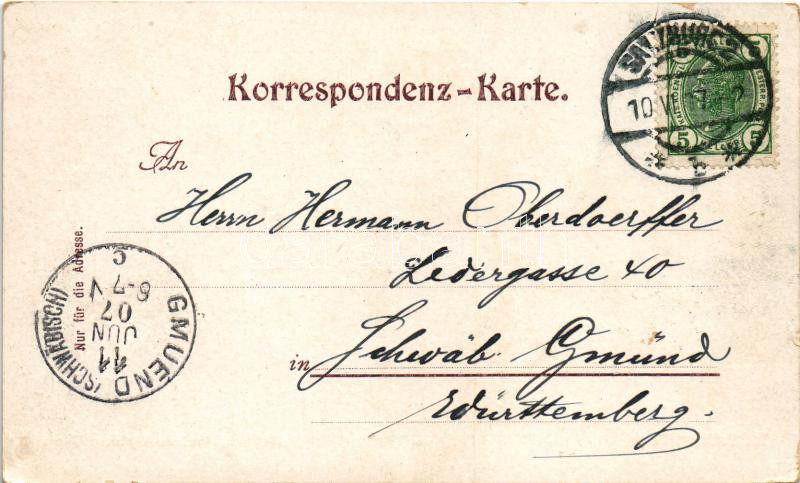 Korrespondenz-Karte.
SALZBURG 2
10 VI
b
5 5
5
An
Herrn Hermann Oberdoerffer
Ledergasse 40
in Schwäb. Gmünd
Württemberg.
Nur für die Adresse.
GMUEND (SCHWÄBISCH)
11
JUN
07
6-7 V
C